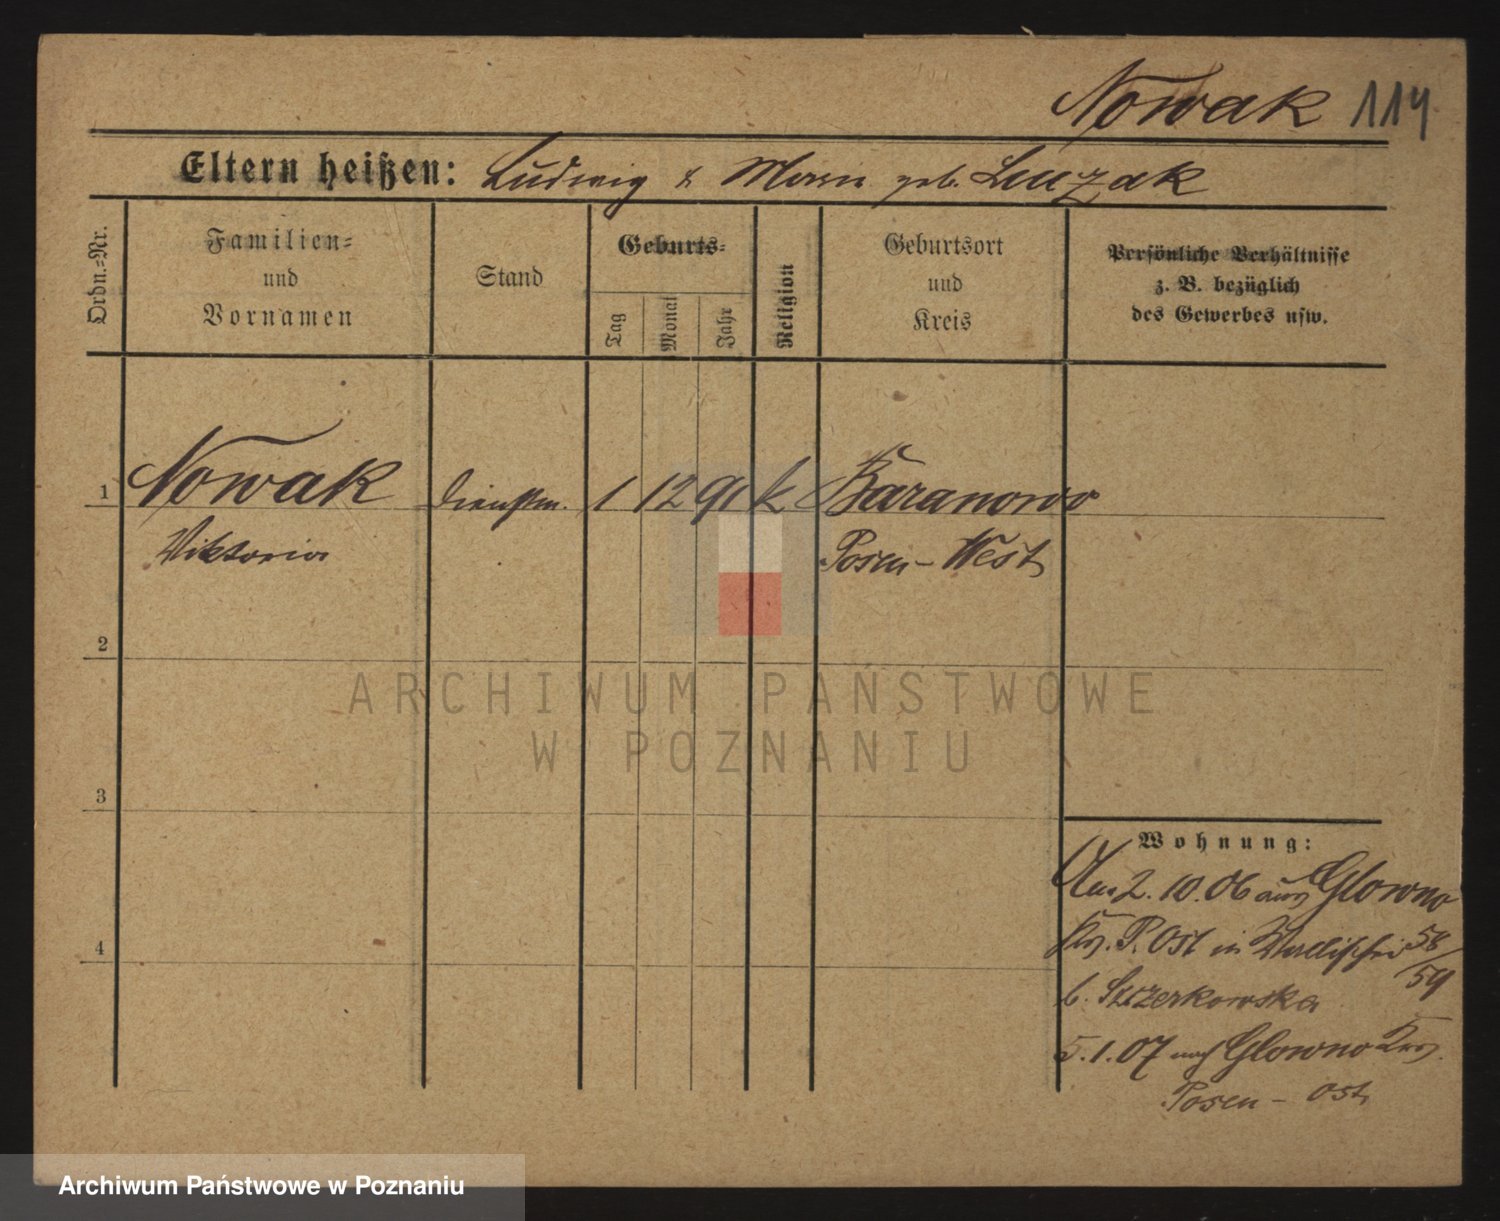 Nowak 114
Eltern heißen: Ludwig & Marie geb. Luczak
Ordn.-Nr.
Familien-
und
Vornamen
Stand
Geburts-
Tag
Monat
Jahr
Religion
Geburtsort
und
Kreis
Persönliche Verhältnisse
z. B. bezüglich
des Gewerbes usw.
1 Nowak Dienstm. 1 12 91 k Baranowo
Viktoria Posen-West
2
ARCHIWUM PAŃSTWOWE
W POZNANIU
3
Wohnung:
Am 2.10.06 aus Glowno
Krs. P. Ost in Wallischei 58/59
b. Szczerkowska
5.1.07 nach Glowno Krs.
Posen-Ost
4
Archiwum Państwowe w Poznaniu